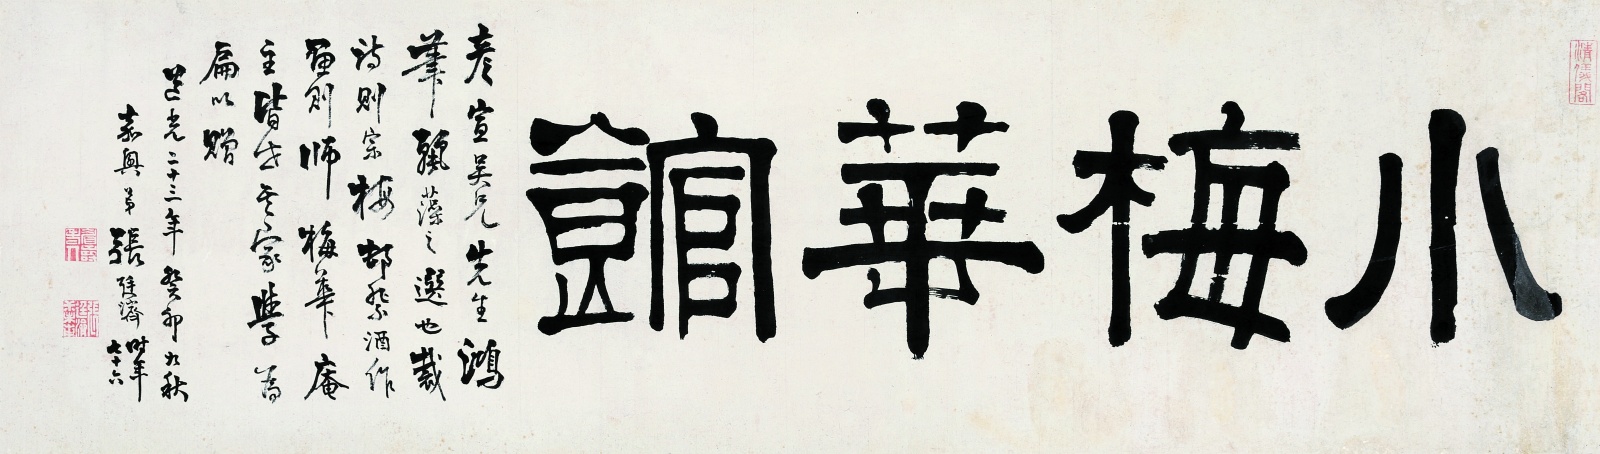 清儀閣
小梅華館
彥宣吳兄先生鴻
筆麗藻之選也裁
詩則宗梅邨祭酒作
畫則師梅華庵
主皆世其家學為
扁以贈
道光二十三年癸卯九秋
嘉興弟張廷濟時年
七十六